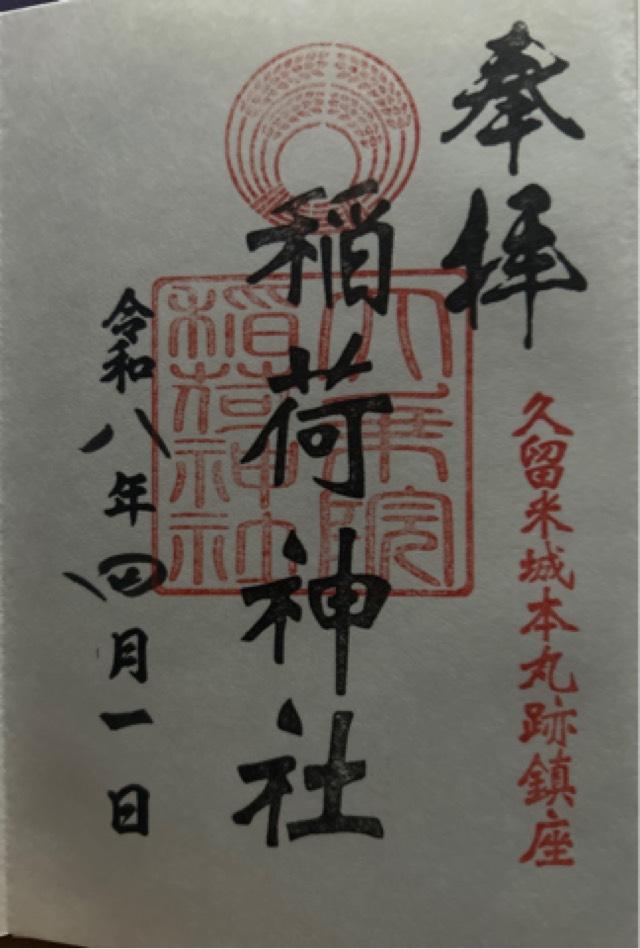 奉拝
久留米城本丸跡鎮座
稲荷神社
大乗院
稲荷神社
令和八年四月一日